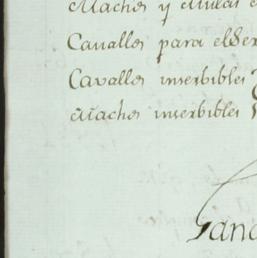 Machos y Mulas
Cavallos para el Ser
Cavallos inserbibles
Machos inserbibles
Sanc